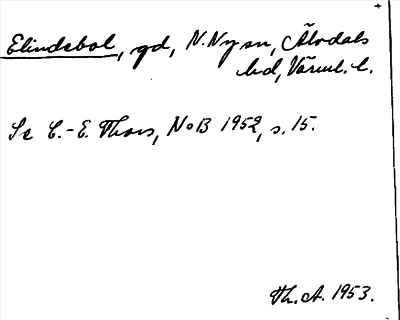 Elindebol, gd, N. Ny sn, Älvdals
hd, Värml. l.
Se C.-E. Thors, NoB 1952, s. 15.
Th. A. 1953.